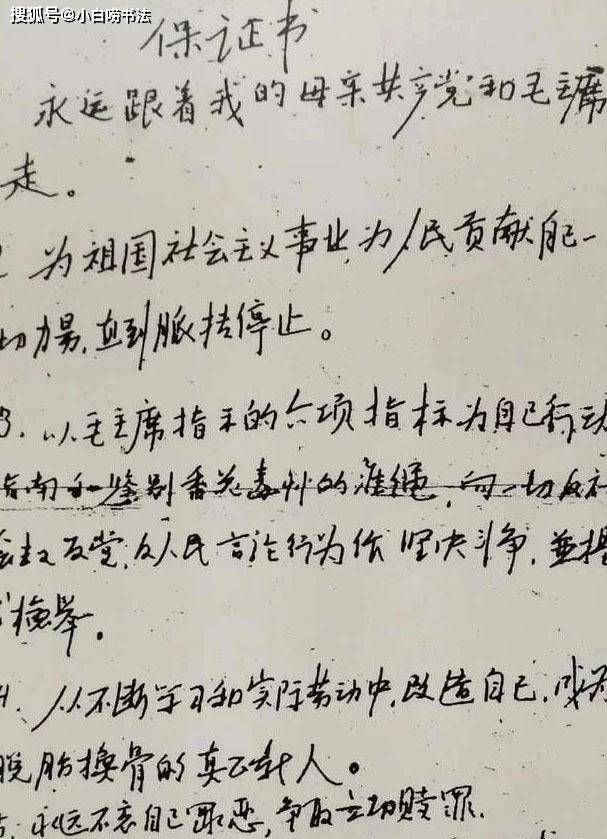 搜狐号@小白唠书法
保证书
永远跟着我的母亲共产党和毛主席
走。
为祖国社会主义事业,为人民贡献自己一
切力量,直到脉搏停止。
3. 以毛主席指示的六项指标为自己行动
指南和鉴别香花毒草的准绳,向一切反社
会主义反党,反人民言论行为作坚决斗争,并揭
检举。
4. 从不断学习和实际劳动中,改造自己,成为
脱胎换骨的真正新人。
永远不忘自己罪恶,争取立功赎罪.